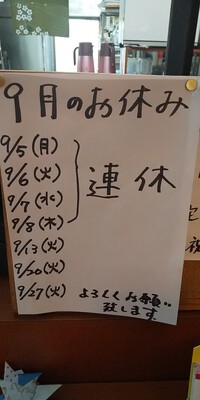 9月のお休み
9/5(月)
9/6(火)
9/7(水)
9/8(木)
連休
9/13(火)
9/20(火)
9/27(火)
よろしくお願い
致します。